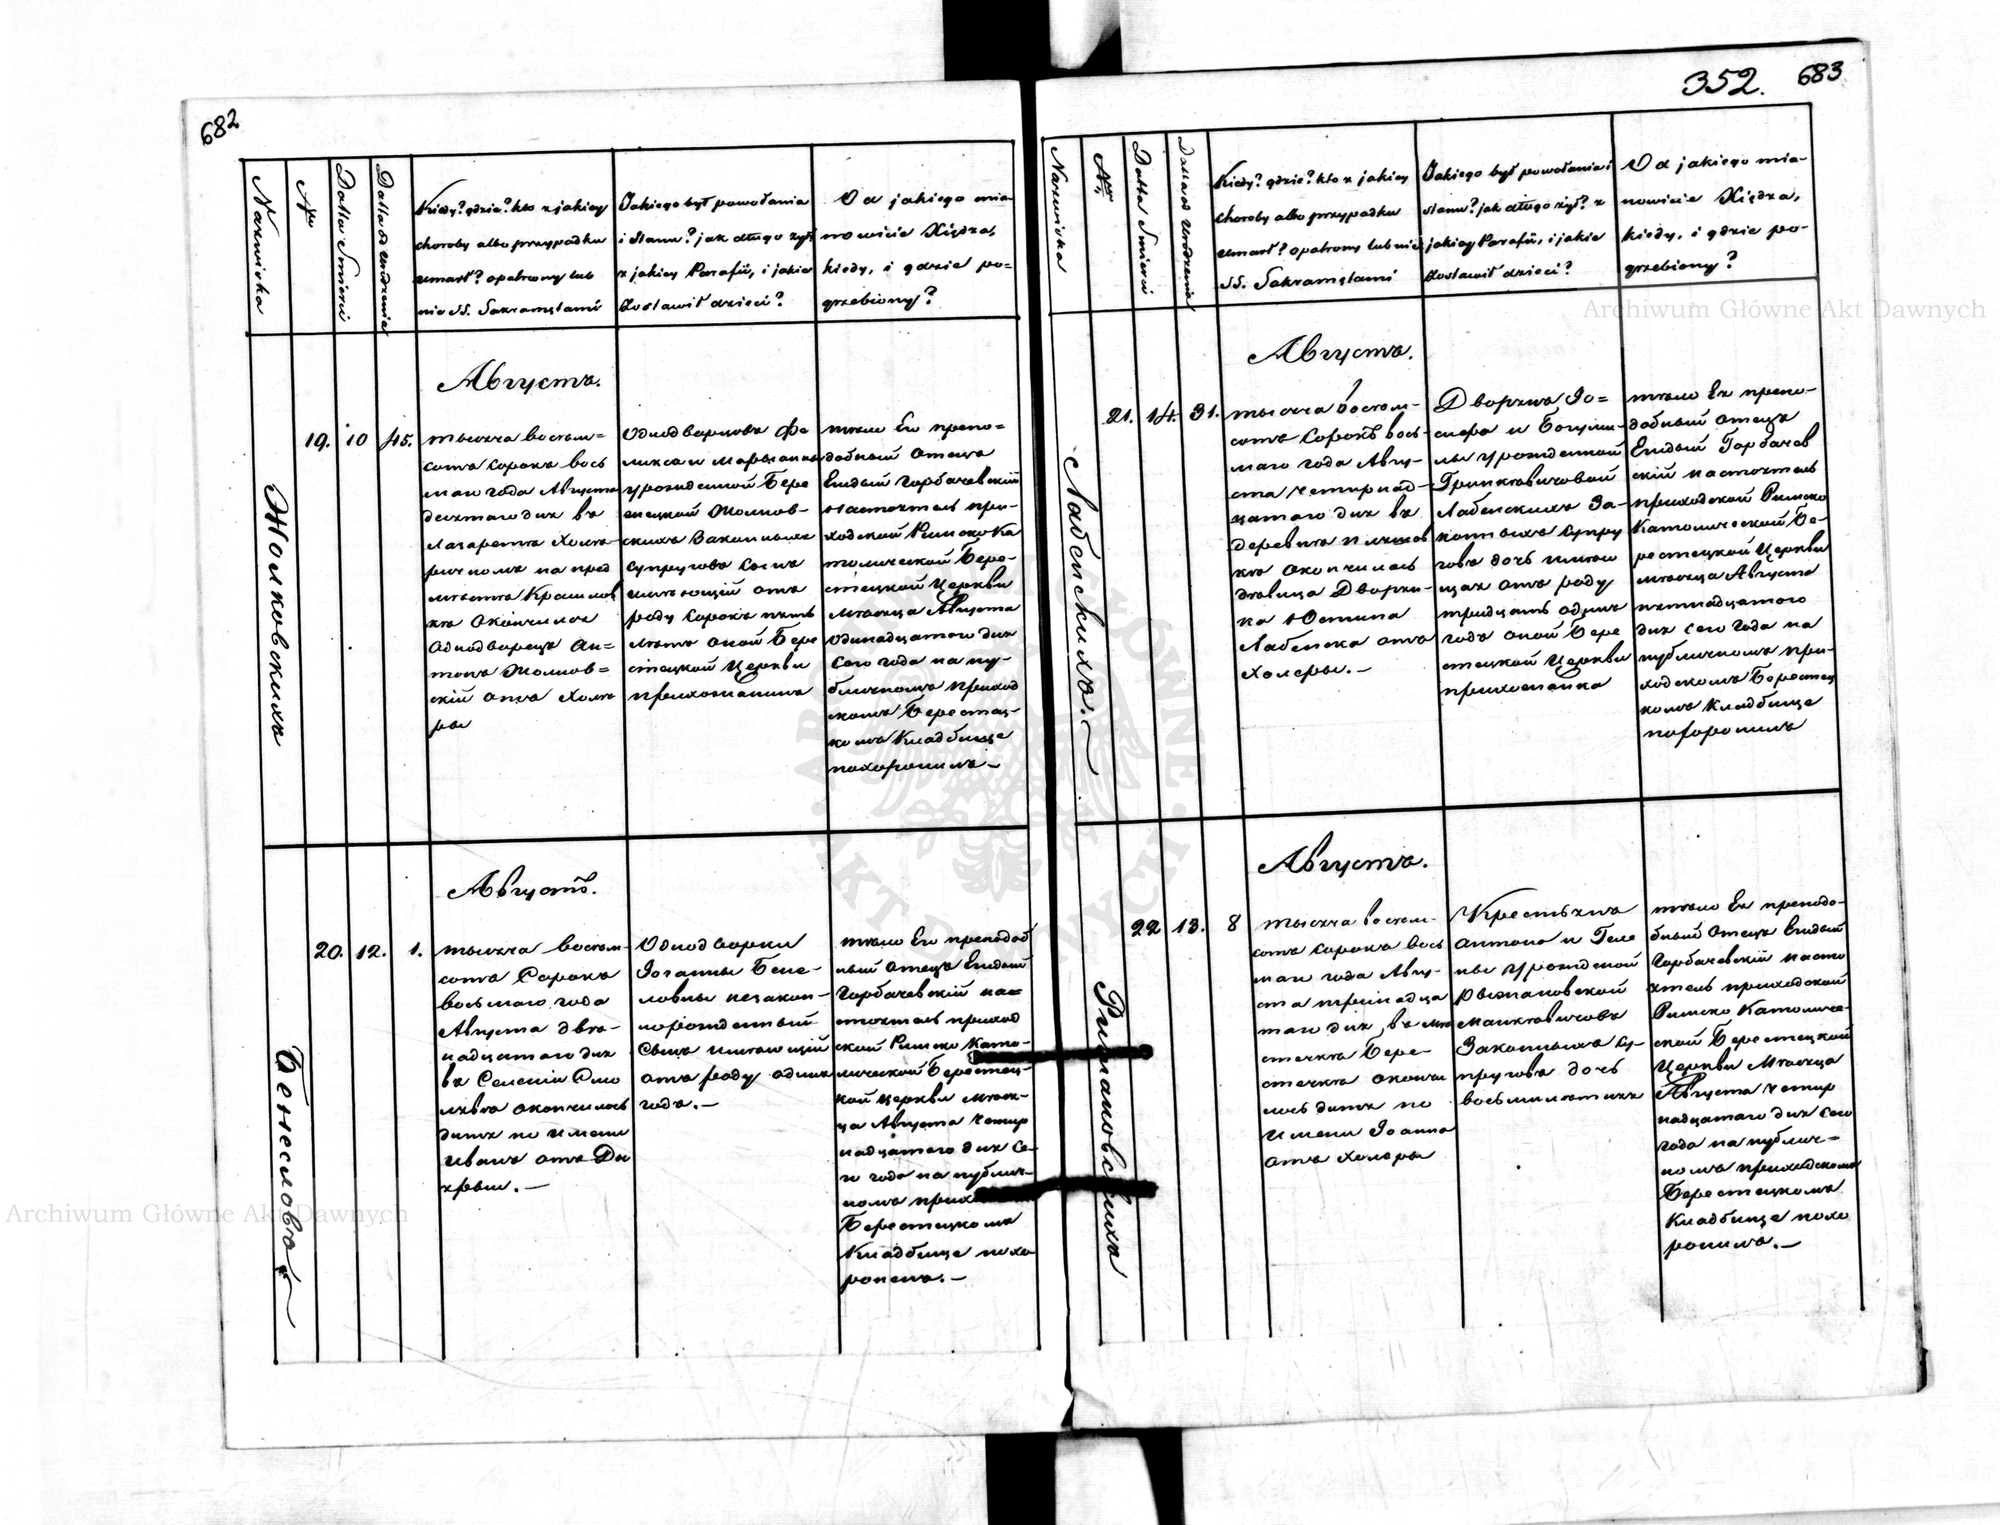 682
Nazwiska
Nr
Datta Smierci
Datta od Urodzenia
Kiedy? gdzie? kto z jakiey
choroby albo przypadku
umarł? opatrzony lub
nie SS. Sakramętami
Jakiego był powołania
i stanu? jak długo żył?
z jakiey Parafii, i jakie
zostawił dzieci?
Od jakiego mia-
nowicie Xiędza,
kiedy, i gdzie po-
grzebiony?
Жолковскихъ
19.
10
45.
Августъ.
тысяча восем=
сотъ сорокъ вось
маго года Августа
десятаго дня въ
Лазаретѣ Холѣ
ричномъ на пред
мѣстѣ Крашлов
кѣ окончился
Однодворецъ Ан=
тонъ Жолков=
скій отъ Холѣ
ры
Однодворцовъ Фе
ликса и Марыанны
урожденной Бере
знецкой Жолков-
скихъ Законныхъ
Супруговъ Сынъ
имѣющій отъ
роду сорокъ пять
лѣтъ оной Бере
стецкой Церкви
прихожанинъ
тѣло Его препо=
добный Отецъ
Егидый Горбачевскій
Настоятель при-
ходской Римско Ка
толической Бере-
стецкой Церкви
мѣсяца Августа
одинадцатого дня
сего года на пу-
бличномъ приход
скомъ Берестец-
комъ Кладбище
похоронилъ —
Бенесловъ
20.
12.
1.
Августъ.
тысяча восем-
сотъ Сорокъ
восьмаго года
Августа двѣ-
надцатого дня
въ Селеніи Смо
лявѣ окончилось
дитя по имени
Иванъ отъ Ди
хрыи. —
Однодворки
Іоганны Бене-
ловны незакон-
норожденный
Сынъ имѣющій
отъ роду одинъ
годъ. —
тѣло Его преподоб
ный Отецъ Егидый
Горбачевскій на=
стоятель приход
ской Римско Като-
лической Берестец-
кой Церкви мѣся-
ца Августа четыр
надцатого дня Се-
го года на публич-
номъ приход
Берестецкомъ
Кладбище похо
роненъ. —
352.
683
Nazwiska
Nr
Datta Smierci
Datta od Urodzenia
Kiedy? gdzie? kto z jakiey
choroby albo przypadku
umarł? opatrzony lub nie
SS. Sakramętami
Jakiego był powołania i
stanu? jak długo żył? z
jakiey Parafii, i jakie
zostawił dzieci?
Od jakiego mia-
nowicie Xiędza,
kiedy, i gdzie po-
grzebiony?
Лабенскихъ. —
21.
14.
31.
Августъ.
тысяча восем-
сотъ Сорокъ вось-
маго года Авгу-
ста четырнад-
цатого дня въ
деревнѣ Пляшов
кѣ окончилась
дѣвица Дворян-
ка Юстина
Лабенска отъ
Холеры. —
Дворянъ Іо=
сифа и Богуми-
лы урожденной
Гринкѣвичовой
Лабенскихъ За-
конныхъ Супру
говъ дочь имѣю
щая отъ роду
тридцать одинъ
годъ оной Бере
стецкой Церкви
прихожанка
тѣло Ея препо-
добный Отецъ
Егидый Горбачев
скій настоятель
приходской Римско
Католической Бе-
рестецкой Церкви
мѣсяца Августа
пятнадцатого
дня сего года на
публичномъ при-
ходскомъ Берестец
комъ Кладбище
похоронилъ
Римановскихъ
22
13.
8
Августъ.
тысяча восем-
сотъ сорокъ вось
маго года Авгу-
ста тринадца
таго дня, въ мѣ
стечкѣ Бере-
стечкѣ окончи
лось дитя по
имени Іоанна
отъ холеры
Крестьянъ
Антона и Геле
ны урожденой
Рымановской
Маикѣвичовъ
Законныхъ Су-
пруговъ дочь
восьмилѣтняя
тѣло Ея преподо-
бный Отецъ Егидый
Горбачевскій насто
ятель приходской
Римско Католиче-
ской Берестецкой
Церкви Мѣсяца
Августа четыр
надцатаго дня сего
года на публич=
номъ приходскомъ
Берестецкомъ
Кладбище похо
ронилъ. —
Archiwum Główne Akt Dawnych
Archiwum Główne Akt Dawnych